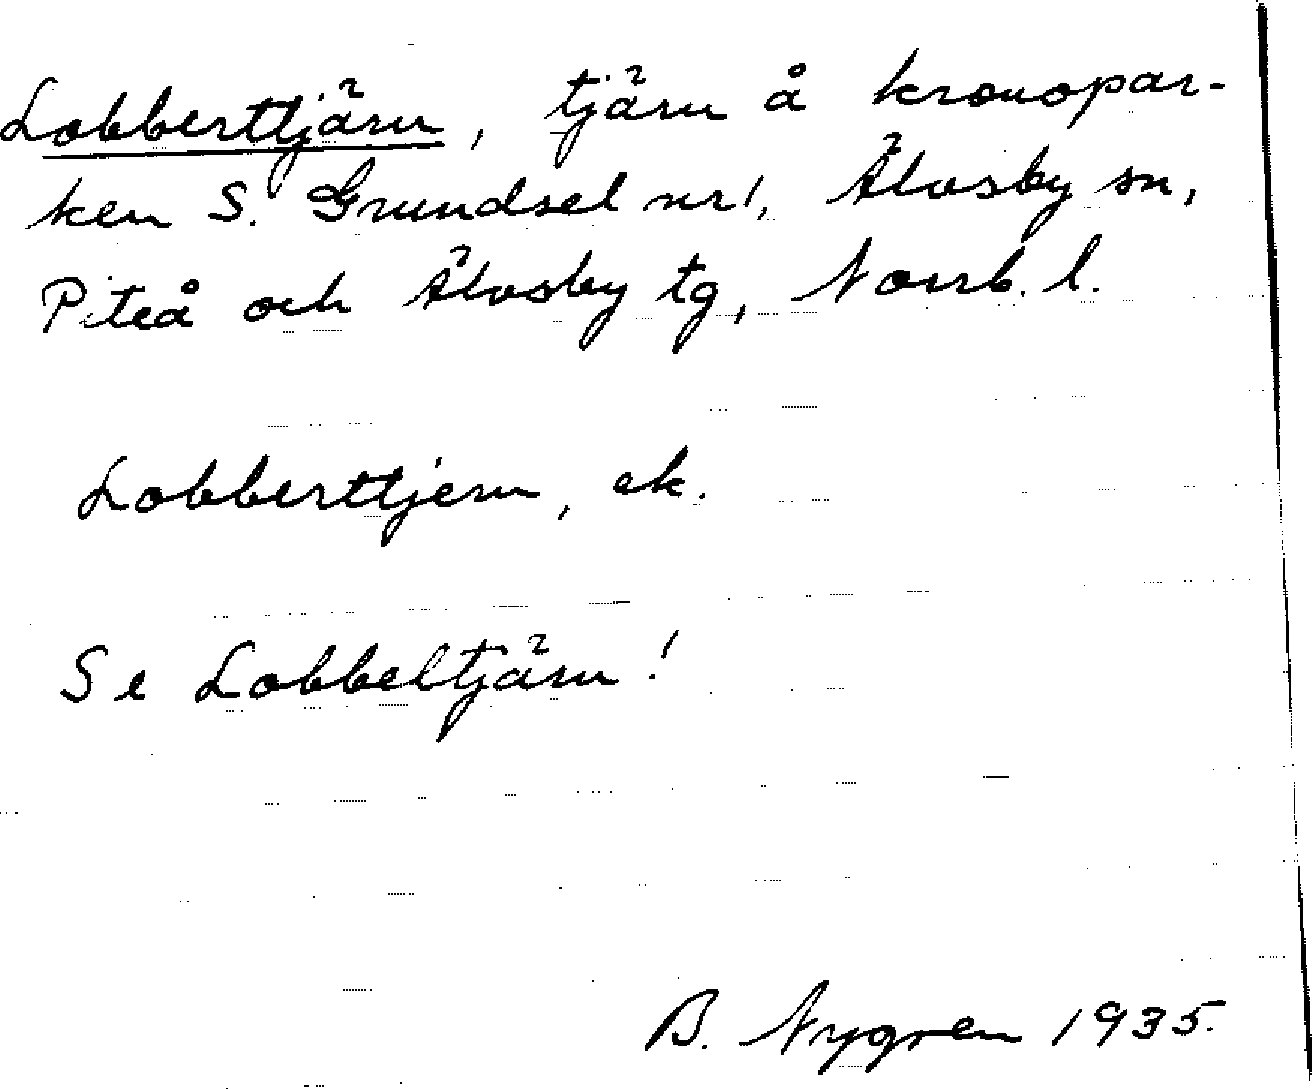 Lobberttjärn, tjärn å kronopar-
ken S. Grundsel nr 1, Älvsby sn,
Piteå och Älvsby tg, Norrb. l.
Lobberttjern, ek.
Se Lobbeltjärn!
B. Nygren 1935.